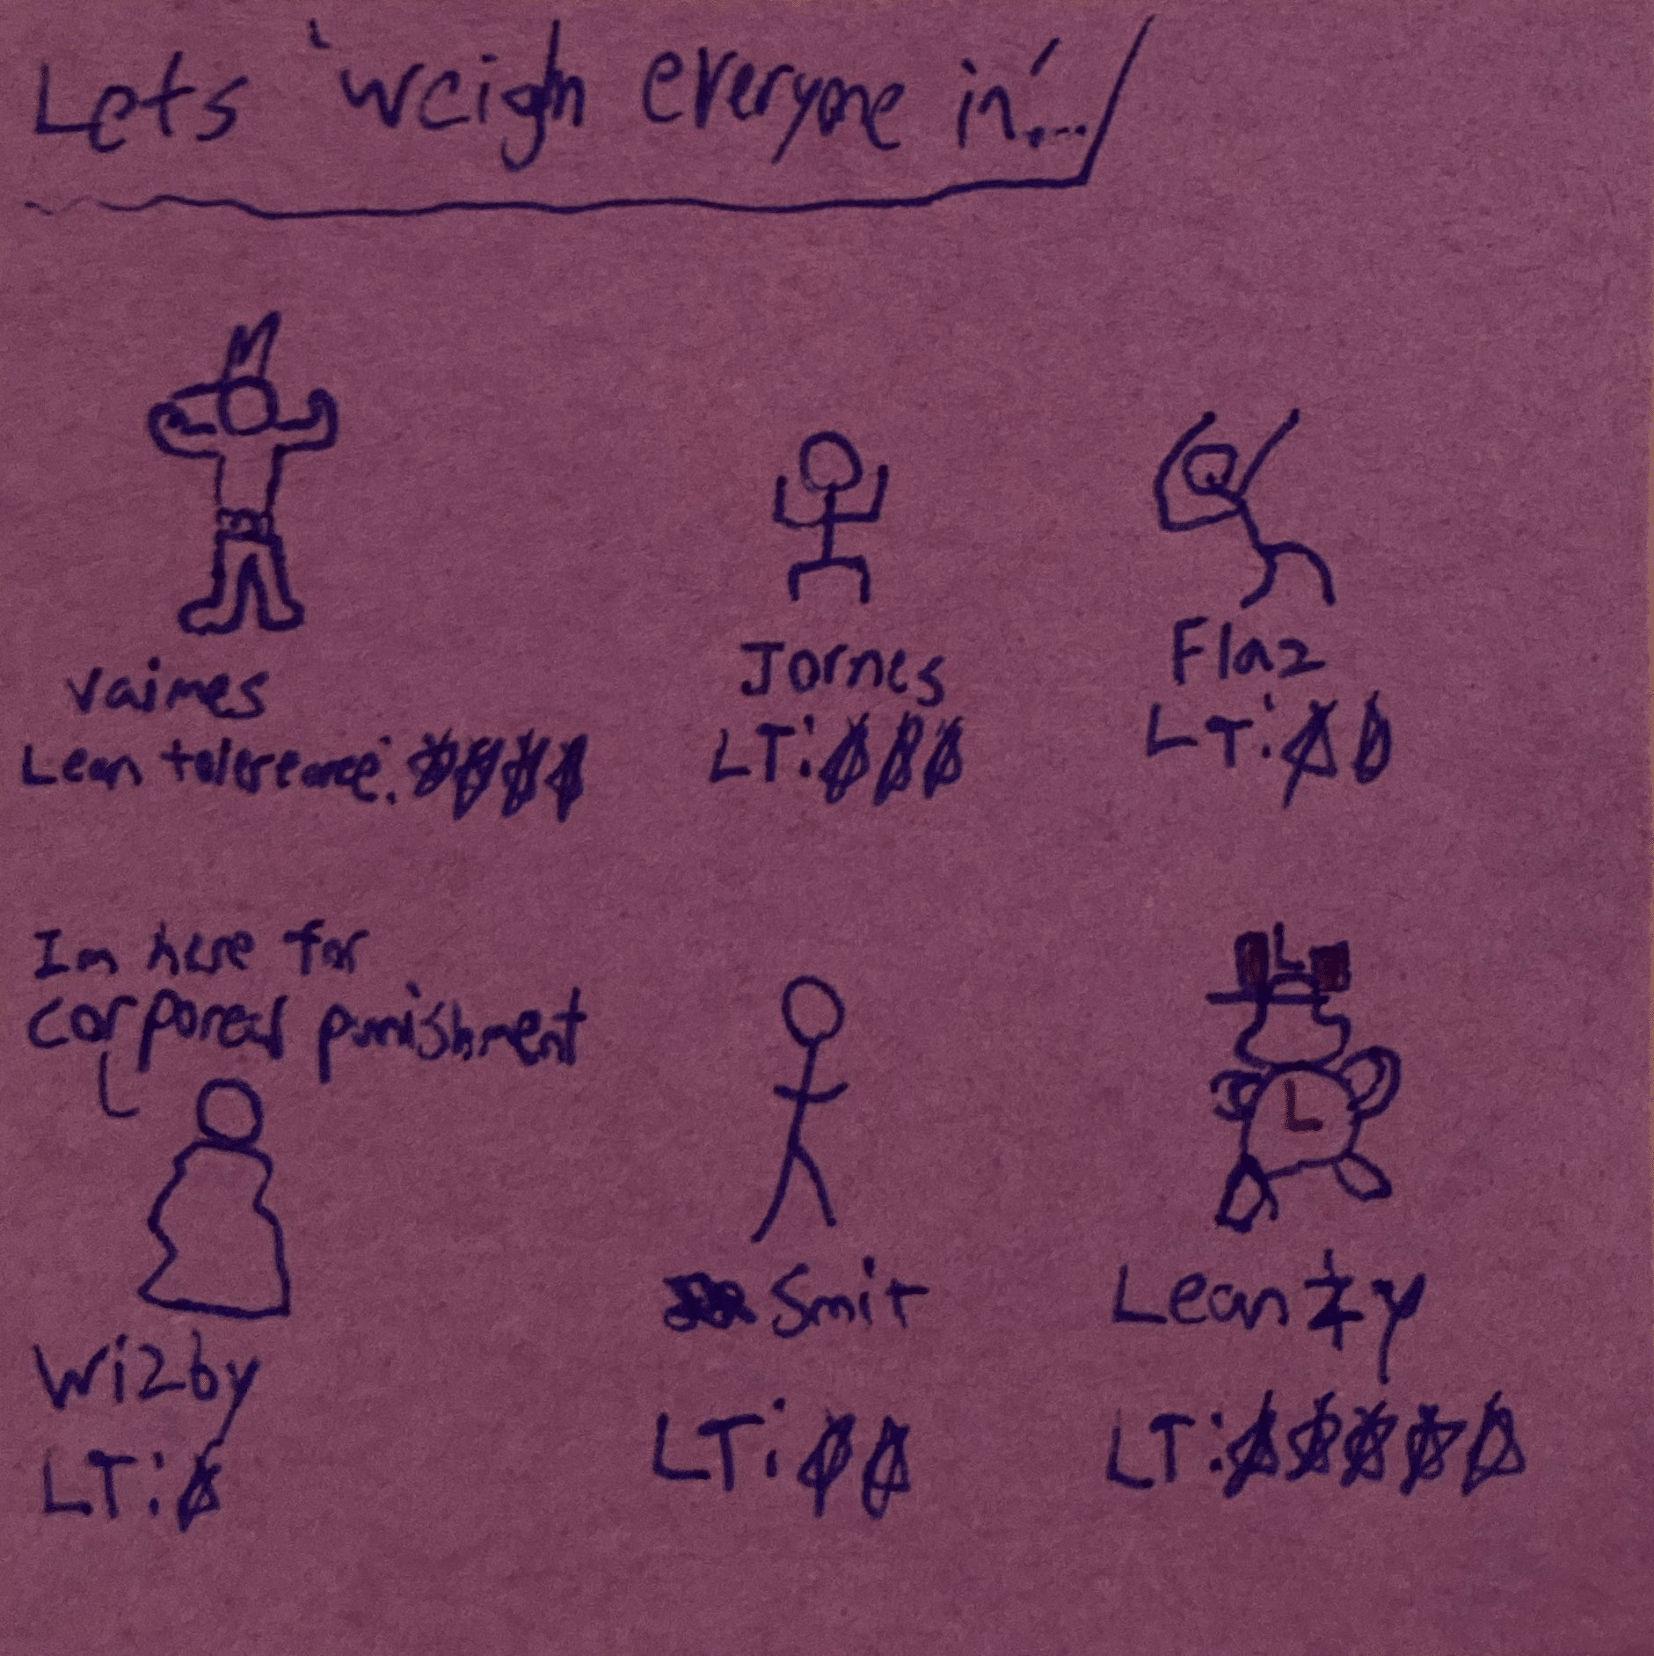 Lets 'weigh everyone in'...
Vaimes
Lean tolereance:
Jornes
LT:
Flaz
LT:
Im here for
corporeal punishment
Wizby
LT:
Smit
LT:
L
L
Leanzy
LT: